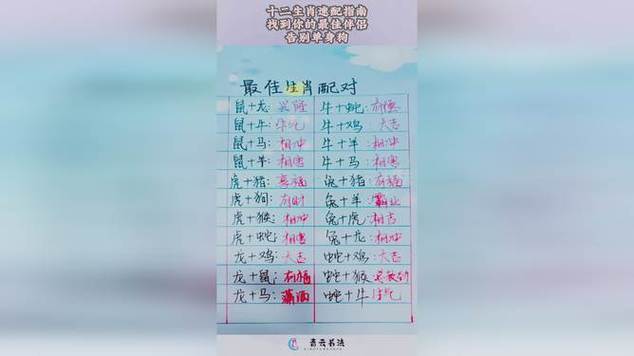 十二生肖速配指南
找到你的最佳伴侣
告别单身狗
最佳生肖配对
鼠+龙:兴隆 牛+蛇:有德
鼠+牛: 牛+鸡 大志
鼠+马:相冲 牛+羊:相冲
鼠+羊:相害 牛+马:相害
虎+猪:享福 兔+猪:有福
虎+狗:有财 兔+羊:霸业
虎+猴:相冲 兔+虎:相吉
虎+蛇:相害 兔+龙:相冲
龙+鸡:大志 蛇+鸡:大志
龙+鼠:有福 蛇+猴
龙+马:潇洒 蛇+牛
青云书法